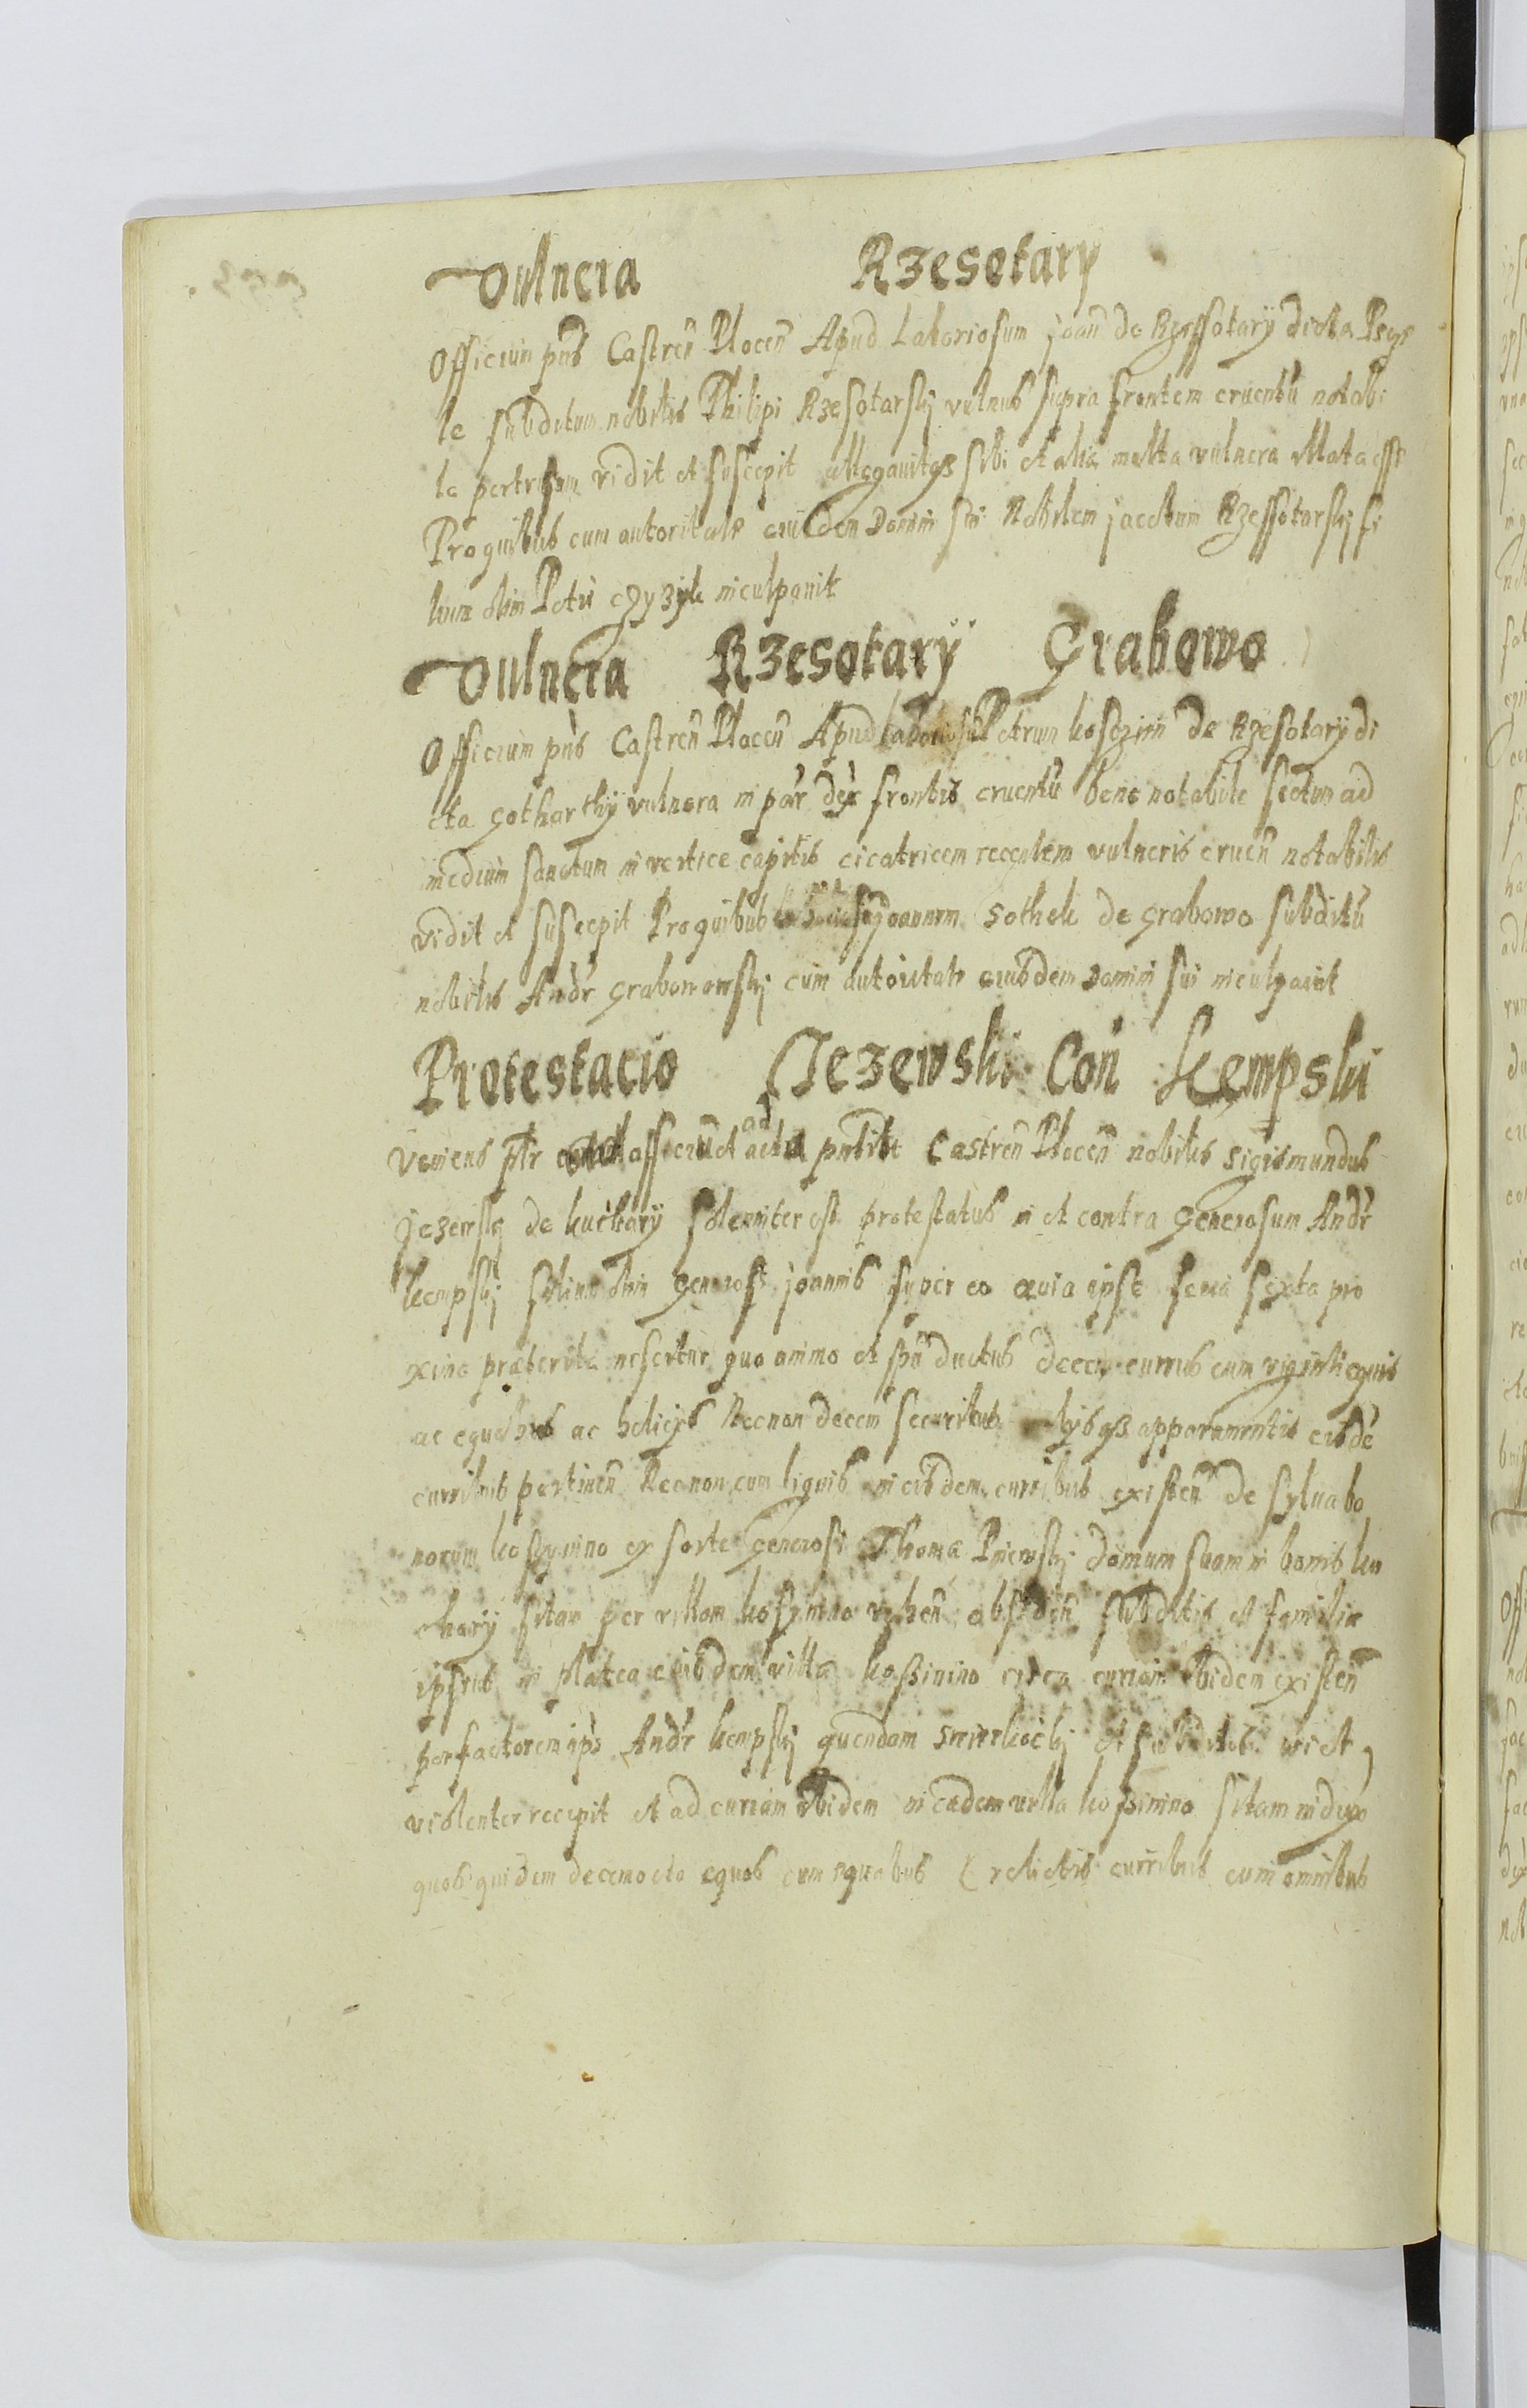 Vulnera Rzesotary
Officium pñs Castreñ Ploceñ Apud Laboriosum joañ de Rzessotarÿ dicta
le subditum nobilis Philipi Rzesotarskj vulnus supra frontem cruentũ notabi
le vidit et suscepit allegavitqз sibi et alia multa vulnera illata esse
Pro quibus cum autoritate eiusdem Domini sui Nobilem Rzessotarskj fi
lium olim Petri inculpavit
Vulnera Rzesotarÿ Grabowo
Officium pñs Castreñ Ploceñ Apud laboriosũ Petrum de Rzesotarÿ di
cta vulnera in frontis cruentũ bene notabile sectum ad
medium in vertice capitis cicatricem recentem vulneris crueñ notabilis
vidit et suscepit Pro quibus joannem Sothek de grabowo subditũ
nobilis Andr grabowskj cum autoritate eiusdem Domini sui inculpavit
Protestacio Jezewski Coñ Kempski
Veniens ptr officiũ et ad acta Castreñ Ploceñ nobilis Sigismundus
Jezewskj de kucharÿ solenniter est protestatus in et contra Generosum Andr
kempskj filium olim Generosi joannis super eo quia ipse feria sexta pro
xime præterita nescitur quo animo et spũ ductus decem currus cum viginti equis
ac equabus ac Necnon decem securibus apparamentis eisdẽ
curribus pertineñ Necnon cum lignis in eisdem curribus existeñ de sylva bo
norum ex sorte Generosi Thomæ domum suam in bonis ku
chary sitam per villam veheñ subditis et familiæ
ipsius in platea eiusdem villæ kossinino circa curiam ibidem existeñ
per factorem ips Andr kempskj quendam et subditos
violenter recepit et ad curiam ibidem in eadem villa kossinino sitam induxit
quos quidem decem octo equos cum equabus relictis curribus cum omnibus